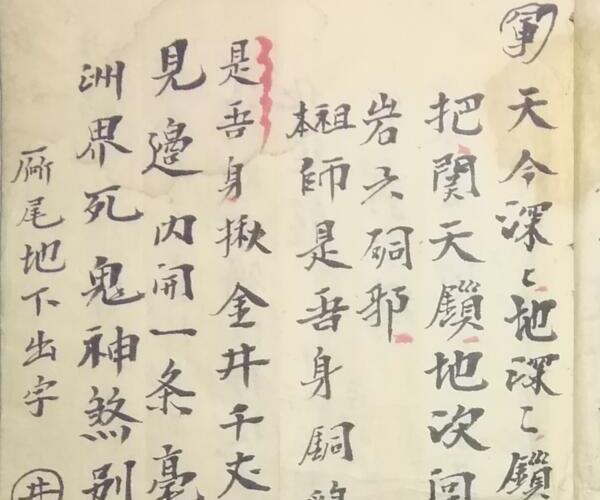 天今深〻地深〻鎖
把関天鎖地次间
岩六硐邪
本祖師是吾身铜
是吾身揪金井千丈
見邉内開一条毫
洲界死鬼神煞别
厮尾地下出字井